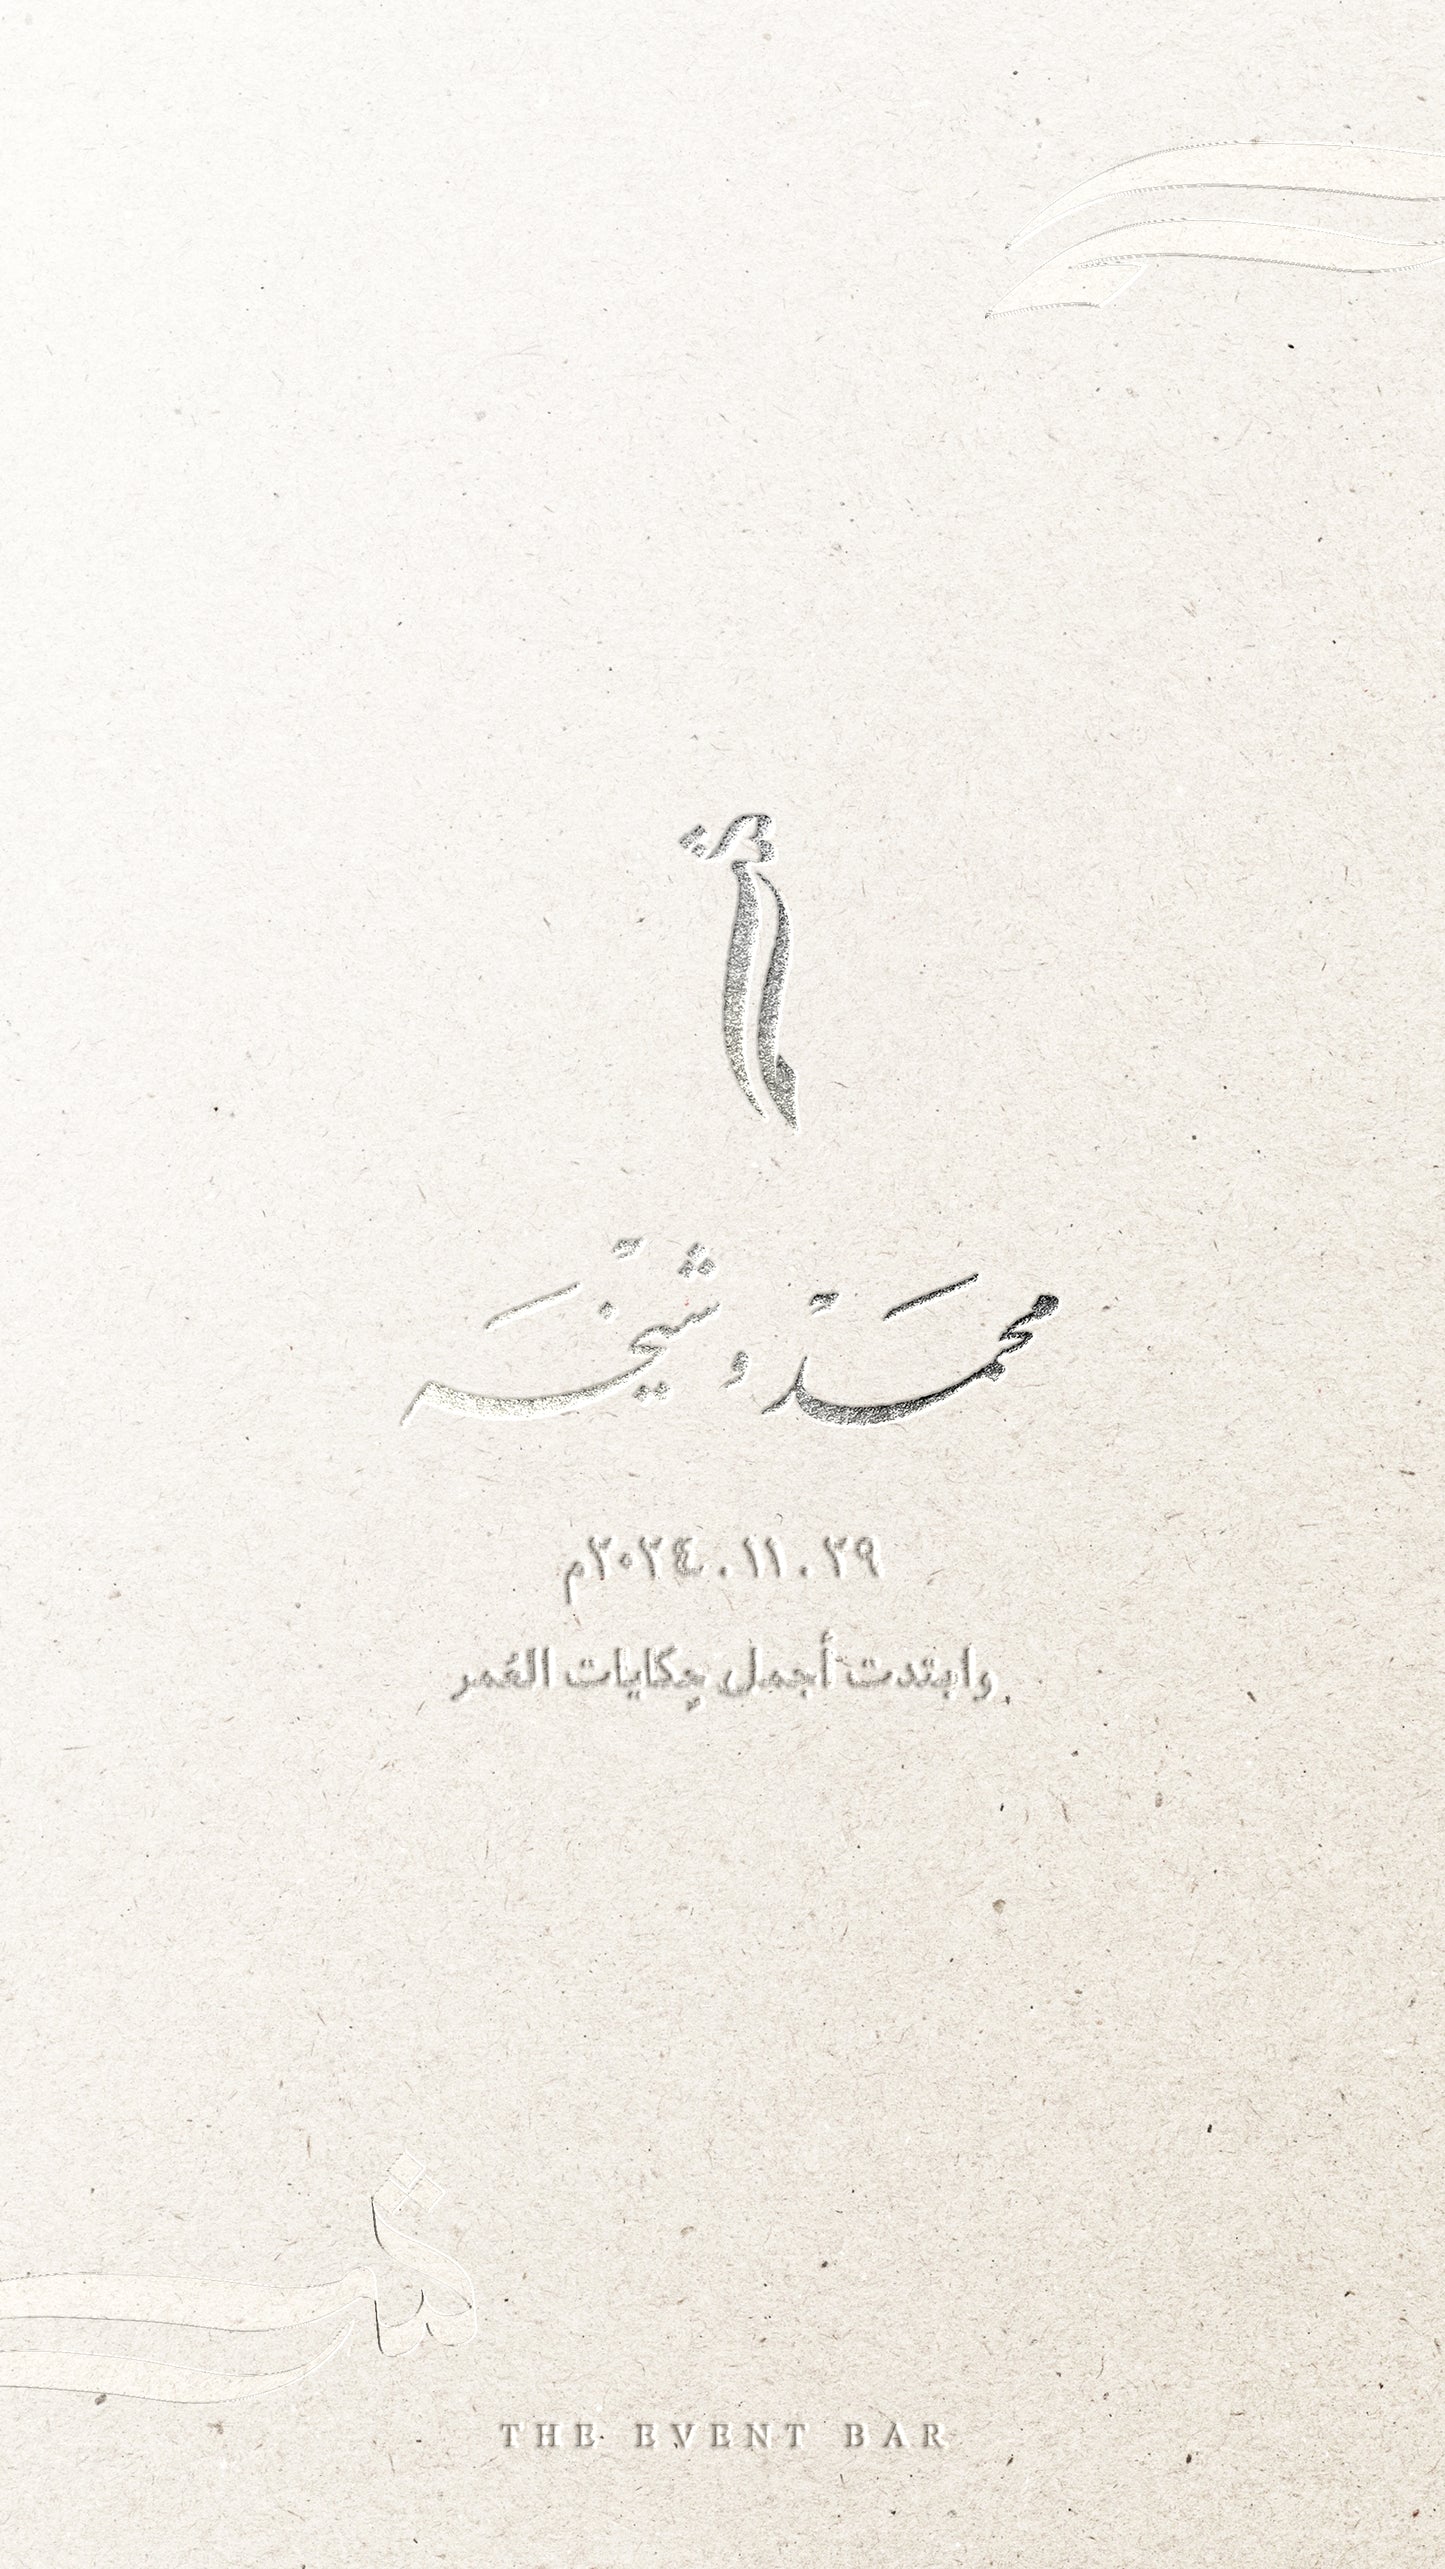 محمد و شيخه
٢٩ . ١١ . ٢٠٢٤م
وابتدت أجمل حِكايات العُمر
THE EVENT BAR